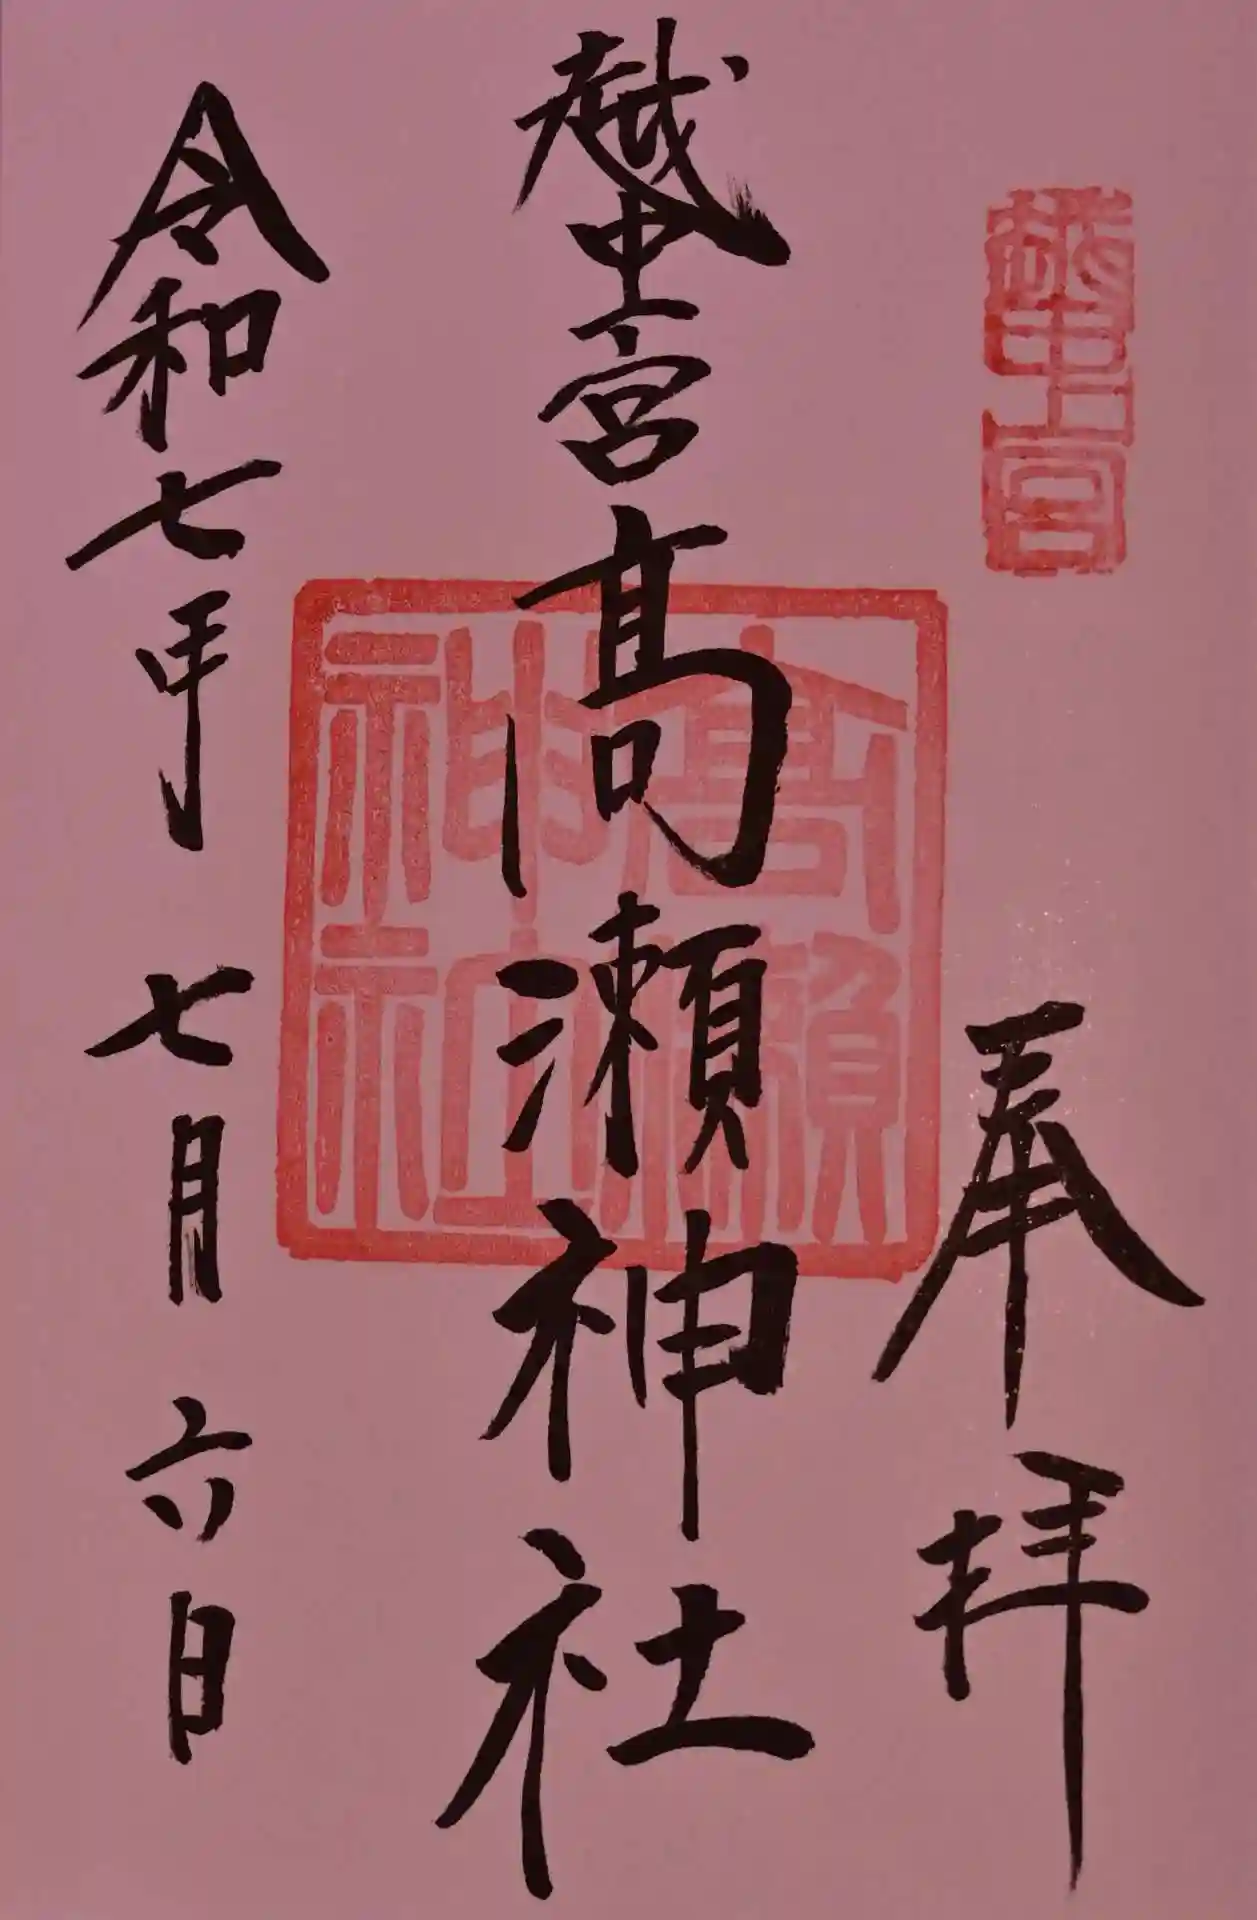 越中一宮
奉拝
越中一宮髙瀬神社
高瀬神社
令和七年七月六日